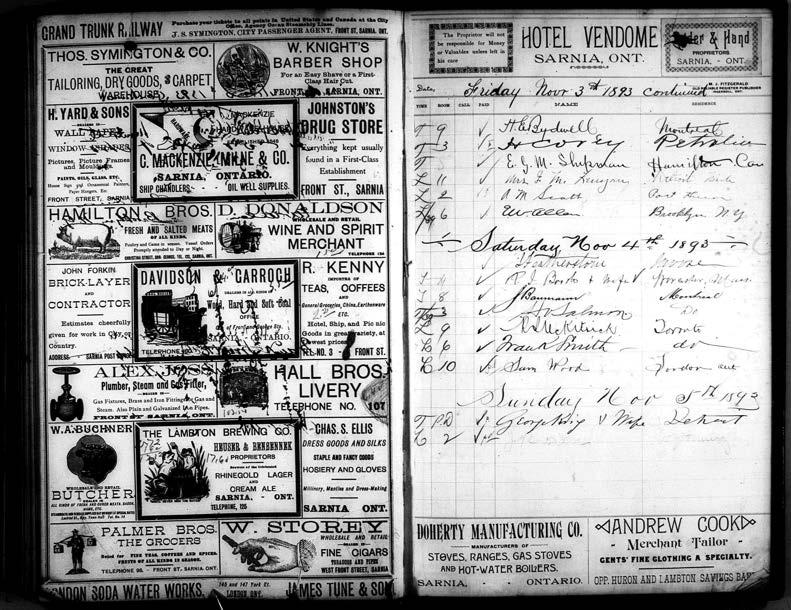 GRAND TRUNK RAILWAY
Purchase your tickets to all points in United States and Canada at the City
Office, Agency Ocean Steamship Lines.
J. S. SYMINGTON, CITY PASSENGER AGENT, FRONT ST, SARNIA, ONT.
THOS. SYMINGTON & CO.
THE GREAT
TAILORING, DRY GOODS, & CARPET
WAREHOUSE
W. KNIGHT'S
BARBER SHOP
For an Easy Shave or a First-
Class Hair Cut.
FRONT SARNIA, ONT.
H. YARD & SONS
DEALERS IN
WALL PAPERS
WINDOW SHADES
Pictures, Picture Frames
and Mouldings
PAINTS, OILS, GLASS, ETC.
House Sign and Ornamental Painters,
Paper Hangers, Etc
FRONT STREET, SARNIA
MACKENZIE
HARDWARE
C. MACKENZIE, MILNE & CO.
SARNIA, ONTARIO.
SHIP CHANDLERS. OIL WELL SUPPLIES.
JOHNSTON'S
DRUG STORE
Everything kept usually
found in a First-Class
Establishment
FRONT ST., SARNIA
HAMILTON BROS.
FRESH AND SALTED MEATS
OF ALL KINDS.
Poultry and Game in season. Vessel Orders
Promptly attended to Day or Night.
D. DONALDSON
WHOLESALE AND RETAIL
WINE AND SPIRIT
MERCHANT
JOHN FORKIN
BRICK-LAYER
AND
CONTRACTOR
Estimates cheerfully
given for work in City or
Country.
ADDRESS SARNIA POST OFFICE
DAVIDSON & CARROCH
DEALERS IN ALL KINDS OF
Wood, Hard and Soft Coal
SARNIA, ONTARIO.
TELEPHONE
R. KENNY
IMPORTER OF
TEAS, COFFEES
AND
General Groceries, China, Earthenware
ETC.
Hotel, Ship, and Pic nic
Goods in great variety, at
lowest prices
TEL. NO. 3 FRONT ST.
ALEX. JOSS
Plumber, Steam and Gas Fitter,
DEALER IN
Gas Fixtures, Brass and Iron Fittings for Gas and
Steam. Also Plain and Galvanized Iron Pipes.
FRONT ST SARNIA, ONT.
HALL BROS.
LIVERY
TELEPHONE NO. 107
W. A. BUCHNER
WHOLESALE AND RETAIL
BUTCHER
THE LAMBTON BREWING CO.
HEUSER & BENSENNEK
PROPRIETORS
Brewers of the Celebrated
RHINEGOLD LAGER
AND
CREAM ALE
SARNIA, - ONT.
TELEPHONE, 125
CHAS. S. ELLIS
DRESS GOODS AND SILKS
STAPLE AND FANCY GOODS
HOSIERY AND GLOVES
Millinery, Mantles and Dress-Making
SARNIA ONT.
PALMER BROS.
THE GROCERS
Noted for FINE TEAS, COFFEES AND SPICES,
FRUITS OF ALL KINDS IN SEASON.
TELEPHONE 96. - FRONT ST. SARNIA ONT.
W. STOREY
WHOLESALE AND RETAIL
DEALER IN
FINE CIGARS
TOBACCOS AND PIPES
WEST FRONT STREET, SARNIA
LONDON SODA WATER WORKS.
145 and 147 York St.
LONDON, ONT.
JAMES TUNE & SON
The Proprietor will
not be responsible for Money
or Valuables unless left in
his care
HOTEL VENDOME
SARNIA, ONT.
& Hand
PROPRIETORS
SARNIA, - ONT.
M. J. FITZGERALD
HOTEL REGISTER PUBLISHER
INGERSOLL, ONT.
Date, Friday Nov 3rd 1893 continued
TIME ROOM CALL PAID NAME RESIDENCE
T 9 H. E. Bydwell Montreal
T 3 H Corey Petrolia
E. G. M. Hamilton Can
11 Mrs
2 Scott Port Huron
6 E W Allen Brooklyn N Y
Saturday Nov 4th 1893
Featherston
11 R J Booth & Wife Worcester, Mass
8 J Baumann Montreal
3 Salmon Do
L 9 McKitrick Toronto
L 6 Frank Smith do
L 10 Sam Wood London ont
Sunday Nov 5th 1893
T P.D George & Wife Detroit
L 2
DOHERTY MANUFACTURING CO.
MANUFACTURERS OF
STOVES, RANGES, GAS STOVES
AND HOT-WATER BOILERS.
SARNIA, - - ONTARIO.
ANDREW COOK
Merchant Tailor
GENTS' FINE CLOTHING A SPECIALTY.
OPP. HURON AND LAMBTON SAVINGS BANK